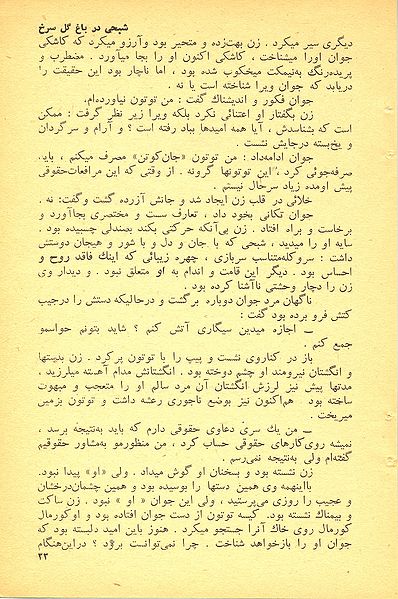 شبحی در باغ گل سرخ
دیگری سیر میکرد ، زن بهت‌زده و متحیر بود وآرزو میکرد که کاشکی
جوان اورا میشناخت ، کاشکی اکنون او را بجا میآورد . مضطرب و
پریده‌رنگ به‌نیمکت میخکوب شده بود ، اما ناچار بود این حقیقت را
دریابد که جوان ویرا شناخته است یا نه .
جوان فکور و اندیشناك گفت : من توتون نیاورده‌ام.
زن بگفتار او اعتنائی نکرد بلکه ویرا زیر نظر گرفت : ممکن
است که بشناسدش ، آیا همه امیدها بباد رفته است ؟ و آرام و سرگردان
و یخ‌بسته درجایش نشست .
جوان ادامه‌داد : من توتون «جان‌کوتن» مصرف میکنم ، باید
صرفه‌جوئی کرد ، این توتونها گرونه . از وقتی که این مرافعات‌حقوقی
پیش اومده زیاد سرحال نیستم .
خلائی در قلب زن ایجاد شد و جانش آزرده گشت وگفت: نه .
جوان تکانی بخود داد ، تعارف سست و مختصری بجاآورد و
برخاست و براه افتاد . زن بی‌آنکه حرکتی بکند بصندلی چسبیده بود .
سایه او را میدید ، شبحی که با جان و دل و با شور و هیجان دوستش
داشت : سروکله‌متناسب سربازی ، چهره زیبائی که اینك فاقد روح و
احساس بود . دیگر این قامت و اندام به او متعلق نبود . و دیدار وی
زن را دچار وحشتی ناآشنا کرده بود .
ناگهان مرد جوان دوباره برگشت و درحالیکه دستش را درجیب
کتش فرو برده بود گفت :
ـ اجازه میدین سیگاری آتش کنم ؟ شاید بتونم حواسمو
جمع کنم .
باز در کنارروی نشست و پیپ را با توتون پرکرد . زن بدستها
و انگشتان نیرومند او چشم دوخته بود . انگشتانش مدام آهسته میلرزید ،
مدتها پیش نیز لرزش انگشتان آن مرد سالم او را متعجب و مبهوت
ساخته بود هم‌اکنون نیز بوضع ناجوری رعشه داشت و توتون بزمین
میریخت .
ـ من یك سری دعاوی حقوقی دارم که باید به‌نتیجه برسد ،
نمیشه روی‌کارهای حقوقی حساب کرد ، من منظورمو به‌مشاور حقوقیم
گفته‌ام ولی به‌نتیجه نمی‌رسم .
زن نشسته بود و بسخنان او گوش میداد . ولی «او» پیدا نبود.
بااینهمه وی همین دستها را بوسیده بود و همین چشمان‌درخشان
و عجیب را روزی می‌پرستید ، ولی این جوان « او » نبود . زن ساکت
و بیمناك نشسته بود. کیسه توتون از دست جوان افتاده بود و اوکورمال
کورمال روی خاك آنرا جستجو میکرد . هنوز باین امید دلبسته بود که
جوان او را بازخواهد شناخت . چرا نمی‌توانست برود ؟ دراین‌هنگام
۲۳